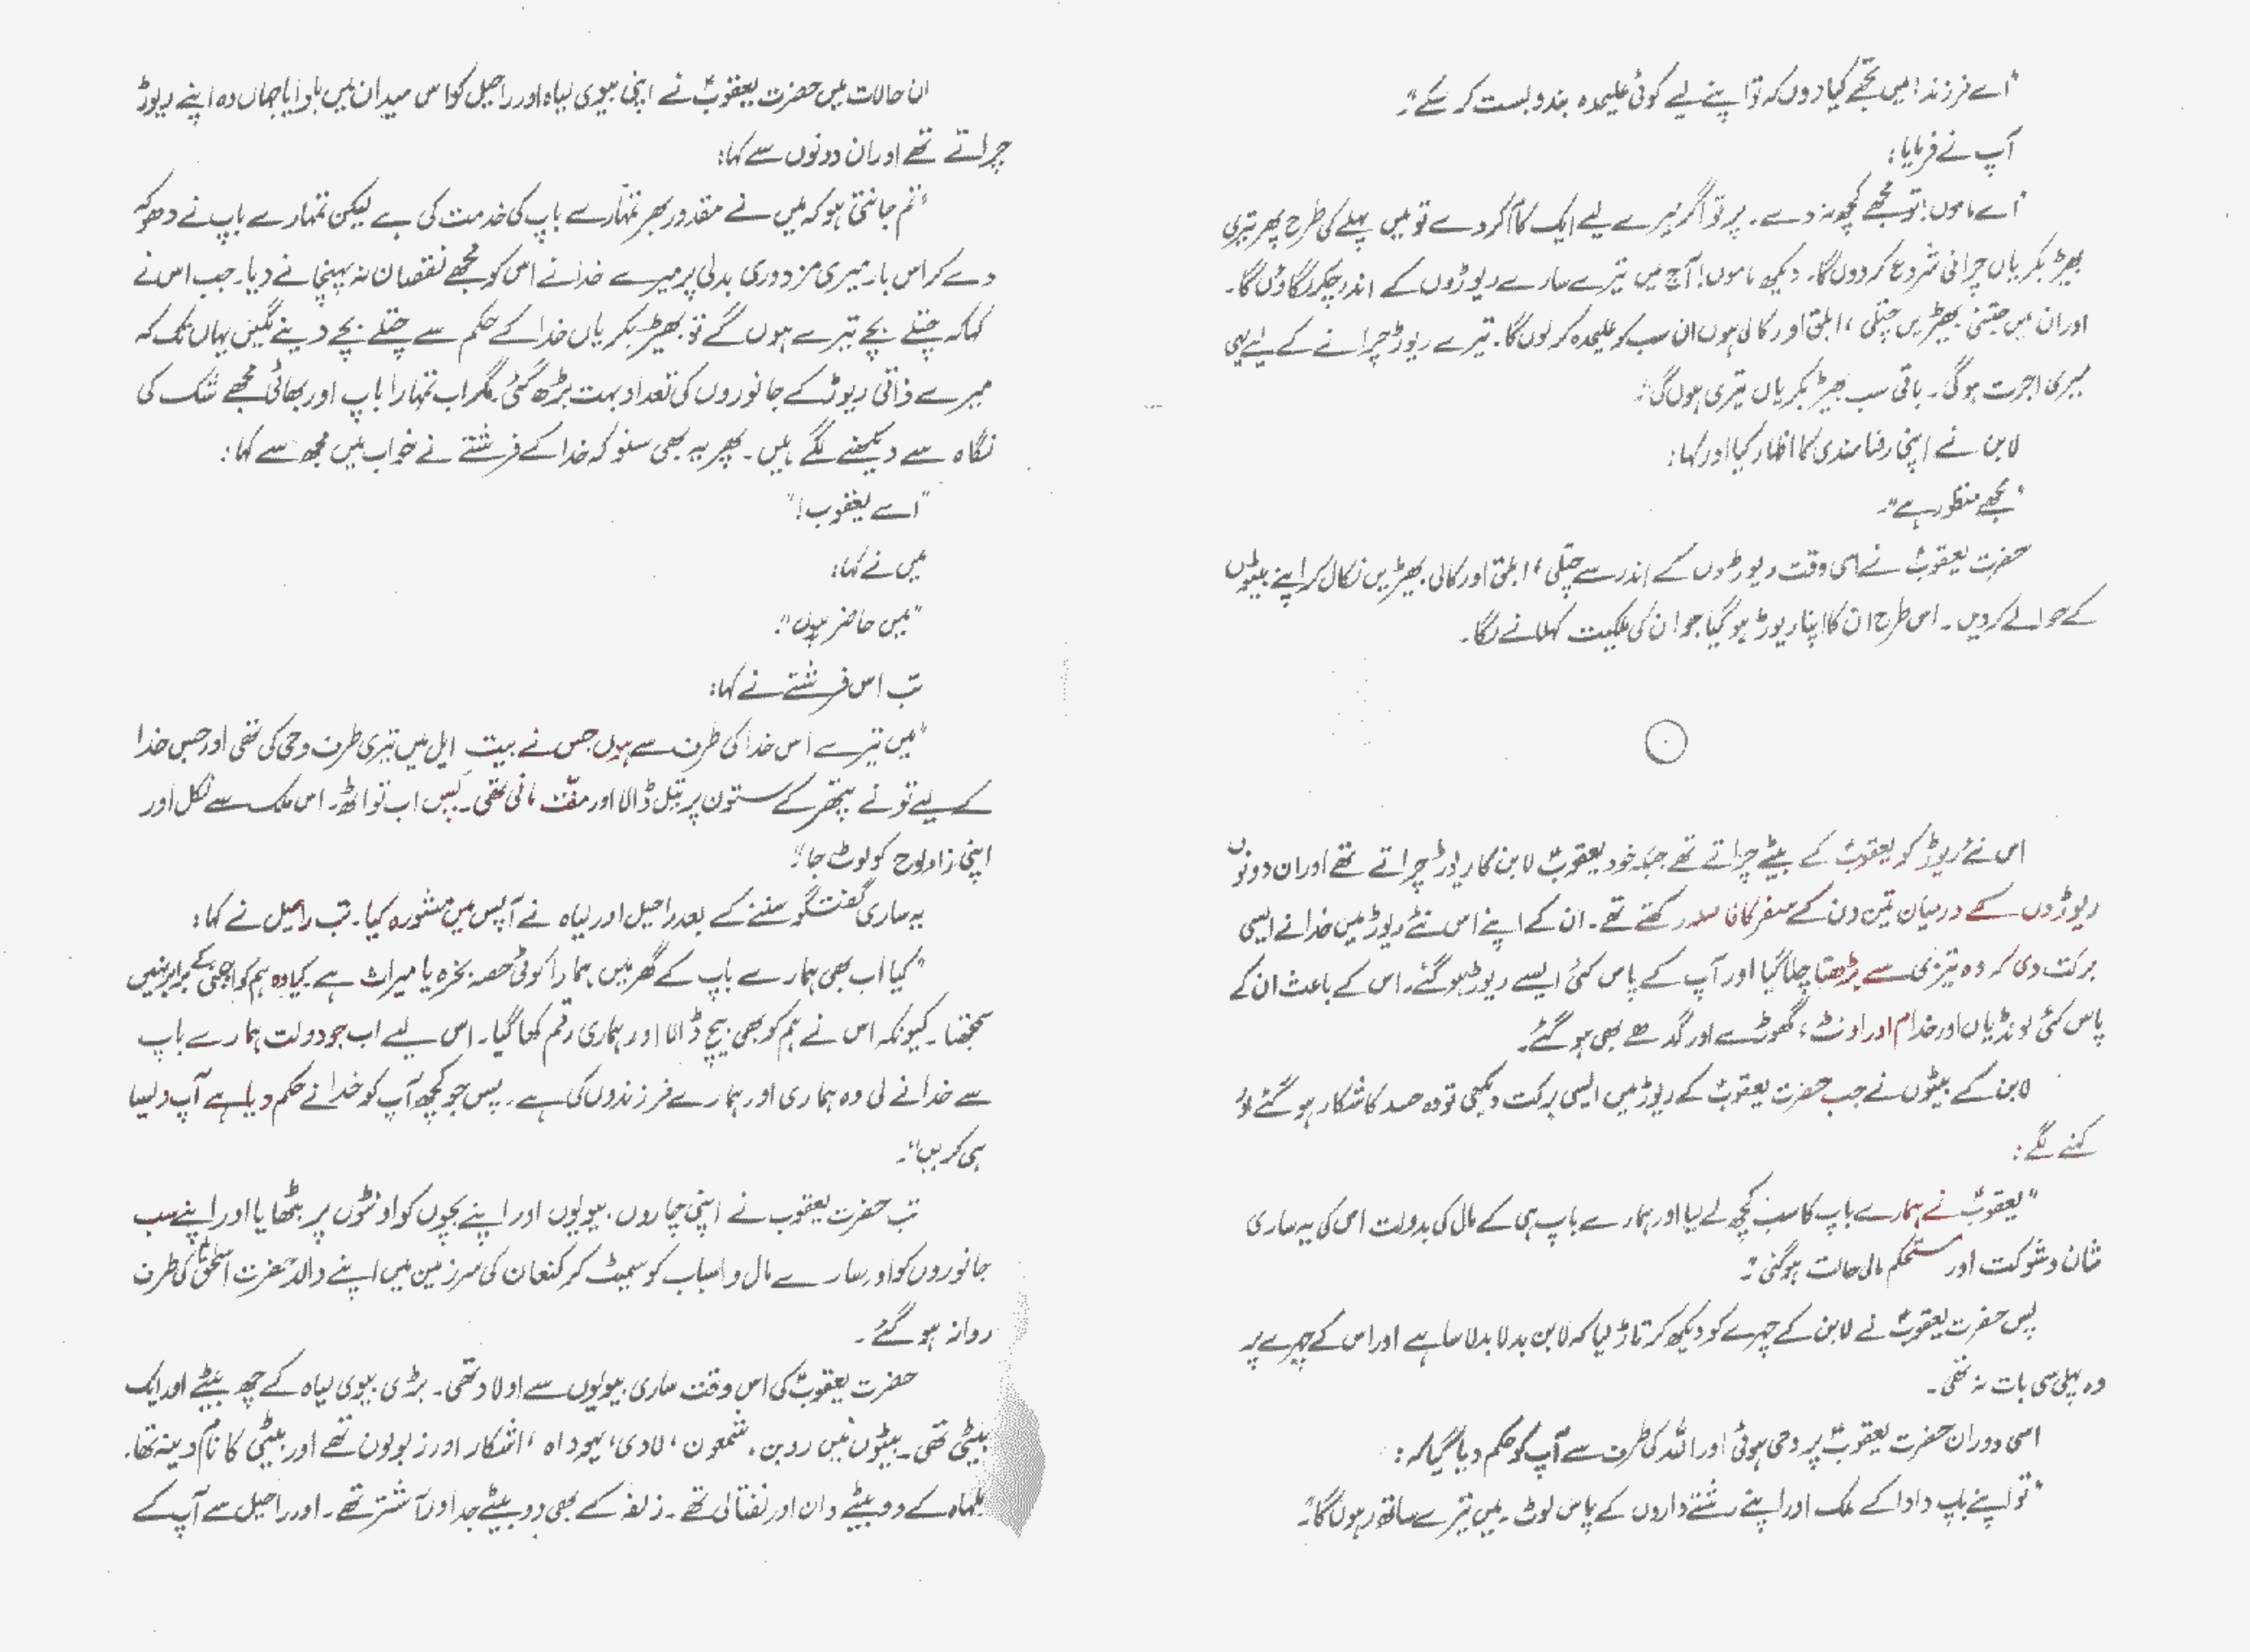 "اے فرزند! میں تجھے کیا دوں کہ تو اپنے لیے کوئی علیحدہ بندوبست کر سکے"۔
آپ نے فرمایا:
"اے ماموں! تو مجھے کچھ نہ دے۔ پر تو اگر میرے لیے ایک کام کر دے تو میں پہلے کی طرح پھر تیری
بھیڑ بکریاں چرانی شروع کر دوں گا۔ دیکھ ماموں! آج میں تیرے سارے ریوڑوں کے اندر چکر لگاؤں گا۔
اور ان میں جتنی بھیڑیں چتلی، ابلق اور کالی ہوں ان سب کو علیحدہ کر لوں گا۔ تیرے ریوڑ چرانے کے لیے یہی
میری اجرت ہوگی۔ باقی سب بھیڑ بکریاں تیری ہوں گی"۔
لابن نے اپنی رضامندی کا اظہار کیا اور کہا:
"مجھے منظور ہے"۔
حضرت یعقوبؑ نے اسی وقت ریوڑوں کے اندر سے چتلی، ابلق اور کالی بھیڑیں نکال کر اپنے بیٹوں
کے حوالے کر دیں۔ اس طرح ان کا اپنا ریوڑ ہو گیا جو ان کی ملکیت کہلانے لگا۔
اس نئے ریوڑ کو یعقوبؑ کے بیٹے چراتے تھے جبکہ خود یعقوبؑ لابن کا ریوڑ چراتے تھے اور ان دونوں
ریوڑوں کے درمیان تین دن کے سفر کا فاصلہ رکھتے تھے۔ ان کے اپنے اس نئے ریوڑ میں خدا نے ایسی
برکت دی کہ وہ تیزی سے بڑھتا چلا گیا اور آپ کے پاس کئی ایسے ریوڑ ہو گئے۔ اس کے باعث ان کے
پاس کئی لونڈیاں اور خدام اور اونٹ، گھوڑے اور گدھے بھی ہو گئے۔
لابن کے بیٹوں نے جب حضرت یعقوبؑ کے ریوڑ میں ایسی برکت دیکھی تو وہ حسد کا شکار ہو گئے اور
کہنے لگے:
"یعقوبؑ نے ہمارے باپ کا سب کچھ لے لیا اور ہمارے باپ ہی کے مال کی بدولت اس کی یہ ساری
شان و شوکت اور مستحکم مالی حالت ہو گئی"۔
پس حضرت یعقوبؑ نے لابن کے چہرے کو دیکھ کر تاڑ لیا کہ لابن بدلا بدلا سا ہے اور اس کے چہرے پر
وہ پہلی سی بات نہ تھی۔
اسی دوران حضرت یعقوبؑ پر وحی ہوئی اور اللہ کی طرف سے آپ کو حکم دیا گیا کہ:
"تو اپنے باپ دادا کے ملک اور اپنے رشتے داروں کے پاس لوٹ۔ میں تیرے ساتھ رہوں گا"۔
ان حالات میں حضرت یعقوبؑ نے اپنی بیوی لیاہ اور راحیل کو اس میدان میں بلوایا جہاں وہ اپنے ریوڑ
چراتے تھے اور ان دونوں سے کہا:
"تم جانتی ہو کہ میں نے مقدور بھر تمہارے باپ کی خدمت کی ہے لیکن تمہارے باپ نے دھوکہ
دے کر اس بار میری مزدوری بدلی پر میرے خدا نے اس کو مجھے نقصان نہ پہنچانے دیا۔ جب اس نے
کہا کہ چتلے بچے تیرے ہوں گے تو بھیڑ بکریاں خدا کے حکم سے چتلے بچے دینے لگیں یہاں تک کہ
میرے ذاتی ریوڑ کے جانوروں کی تعداد بہت بڑھ گئی مگر اب تمہارا باپ اور بھائی مجھے شک کی
نگاہ سے دیکھنے لگے ہیں۔ پھر یہ بھی سنو کہ خدا کے فرشتے نے خواب میں مجھ سے کہا:
"اے یعقوب!"
میں نے کہا:
"میں حاضر ہوں"۔
تب اس فرشتے نے کہا:
"میں تیرے اس خدا کی طرف سے ہوں جس نے بیت ایل میں تیری طرف وحی کی تھی اور جس خدا
کے لیے تو نے پتھر کے ستون پر تیل ڈالا اور منت مانی تھی۔ پس اب تو اٹھ۔ اس ملک سے نکل اور
اپنی زاد کو لوٹ جا"۔
یہ ساری گفتگو سننے کے بعد راحیل اور لیاہ نے آپس میں مشورہ کیا۔ تب راحیل نے کہا:
"کیا اب بھی ہمارے باپ کے گھر میں ہمارا کوئی حصہ بخرہ یا میراث ہے کیا وہ ہم کو اجنبی کے برابر نہیں
سمجھتا۔ کیونکہ اس نے ہم کو بھی بیچ ڈالا اور ہماری رقم کھا گیا۔ اس لیے اب جو دولت ہمارے باپ
سے خدا نے لی وہ ہماری اور ہمارے فرزندوں کی ہے۔ پس جو کچھ آپ کو خدا نے حکم دیا ہے آپ ویسا
ہی کریں"۔
تب حضرت یعقوب نے اپنی چاروں بیویوں اور اپنے بچوں کو اونٹوں پر بٹھایا اور اپنے سب
جانوروں کو اور سارے مال و اسباب کو سمیٹ کر کنعان کی سرزمین میں اپنے والد حضرت اسحٰقؑ کی طرف
روانہ ہو گئے۔
حضرت یعقوبؑ کی اس وقت ساری بیویوں سے اولاد تھی۔ بڑی بیوی لیاہ کے چھ بیٹے اور ایک
بیٹی تھی۔ بیٹوں میں روبن، شمعون، لاوی، یہوداہ، اشکار اور زبولون تھے اور بیٹی کا نام دینہ تھا۔
بلہاہ کے دو بیٹے دان اور نفتالی تھے۔ زلفہ کے بھی دو بیٹے جد اور آشتر تھے۔ اور راحیل سے آپ کے